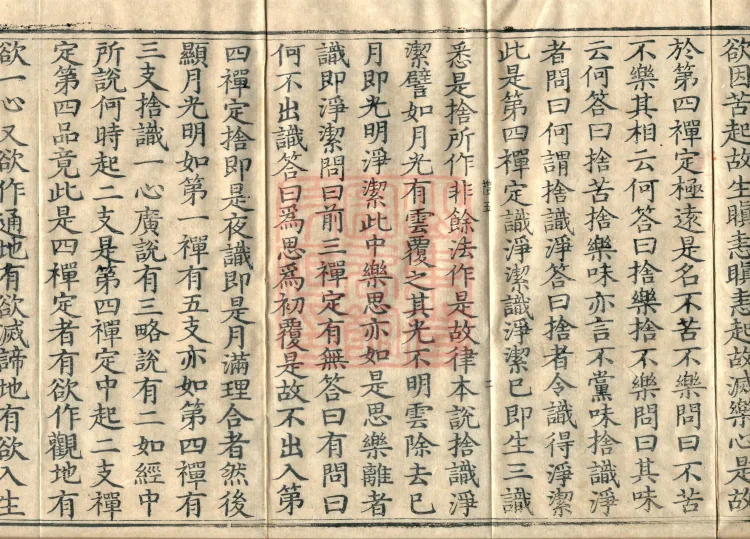 欲因苦起故生瞋恚瞋恚起故滅樂心是故
於第四禪定極遠是名不苦不樂問曰不苦
不樂其相云何答曰捨樂捨不樂問曰其味
云何答曰捨苦捨樂味亦言不黨味捨識淨
者問曰何謂捨識淨答曰捨者令識得淨潔
此是第四禪定識淨潔識淨潔已即生三識
悉是捨所作非餘法作是故律本說捨識淨
潔譬如月光有雲覆之其光不明雲除去已
月即光明淨潔此中樂思亦如是思樂離者
識即淨潔問曰前三禪定有無答曰有問曰
何不出識答曰為思為初覆是故不出入第
四禪定捨即是夜識即是月滿理合者然後
顯月光明如第一禪有五支亦如第四禪有
三支捨識一心廣說有三略說有二如經中
所說何時起二支是第四禪定中起二支禪
定第四品竟此是四禪定者有欲作觀地有
欲一心又欲作通地有欲滅諦地有欲入生